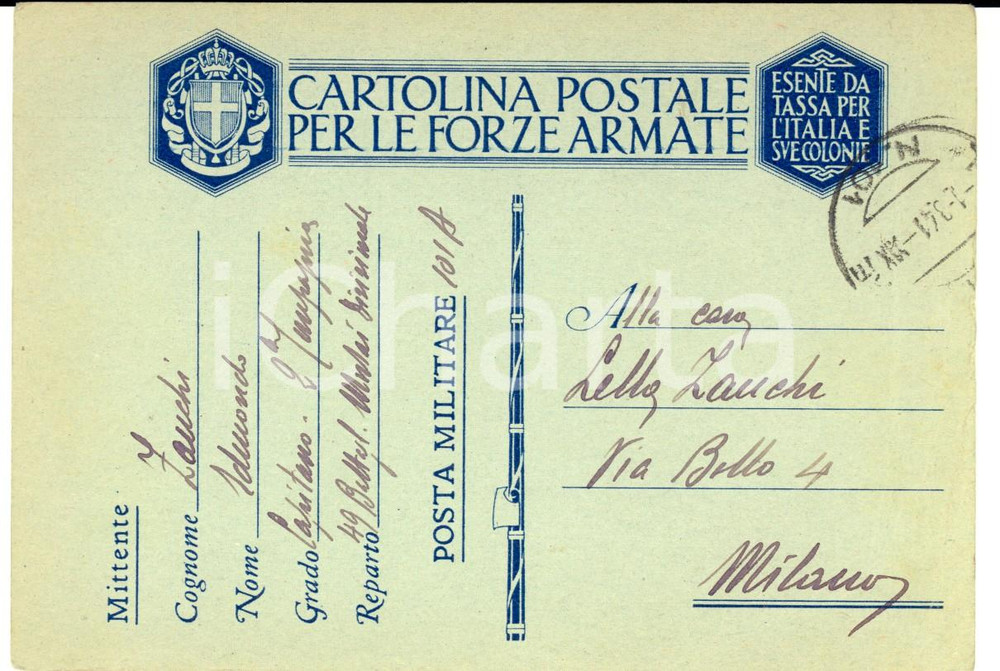 CARTOLINA POSTALE
PER LE FORZE ARMATE
ESENTE DA
TASSA PER
L'ITALIA E
SVE COLONIE
N. 101
Mittente
Cognome Zanchi
Nome Edmondo
Grado Capitano - 2ª Compagnia
Reparto 49 Battgl. Mortai Divisionale
POSTA MILITARE 101 A
Alla cara
Lella Zanchi
Via Bello 4
Milano
iCharta